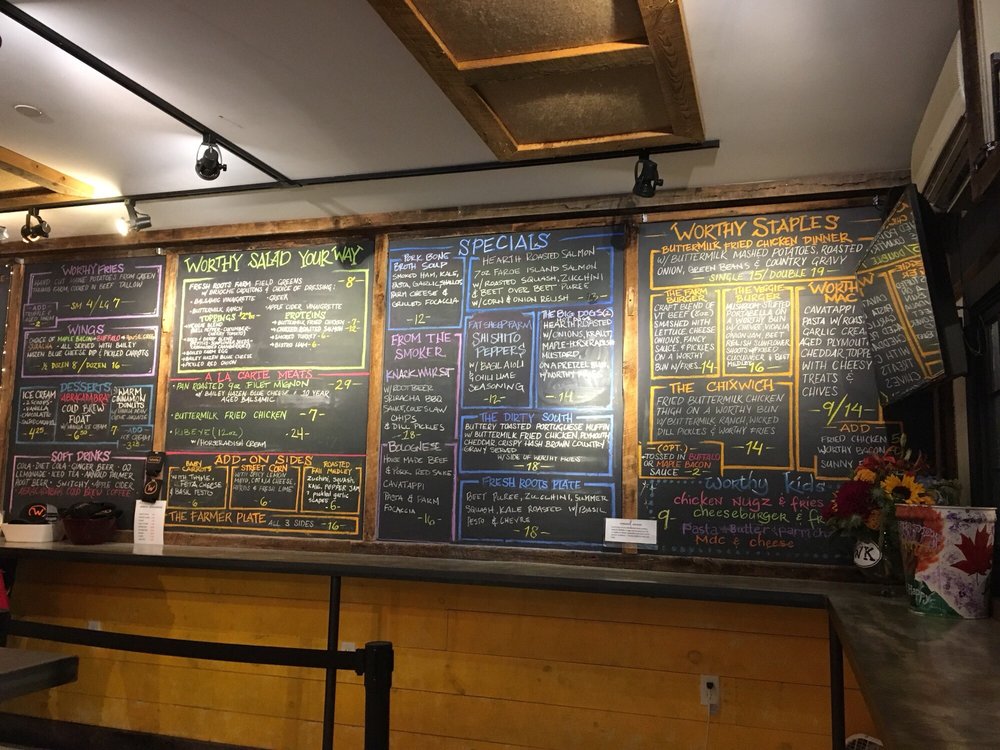 WORTHY FRIES
HAND CUT MAINE POTATOES FROM GREEN
FRIED IN BEEF TALLOW
ADD
SM 4/LG 7
WINGS
CHOICE OF MAPLE BACON OR BUFFALO OR
ALL SERVED WITH BAILEY
HAZEN BLUE CHEESE DIP & PICKLED CARROTS
½ DOZEN 8/DOZEN 16-
DESSERTS
ICE CREAM
2 SCOOPS
VANILLA
CHOCOLATE
4.25
ABRACADABRA
COLD BREW
FLOAT
W/ VANILLA
ICE CREAM
-6.50-
FARM
CINNAMON
DONUTS
7
ADD
ICE CREAM
SOFT DRINKS
COLA • DIET COLA • GINGER BEER • OJ
LEMONADE • ICED TEA • ARNOLD PALMER
ROOT BEER • SWITCHY • APPLE CIDER
ABRACADABRA COLD BREW COFFEE
WORTHY SALAD YOUR WAY
FRESH ROOTS FARM FIELD GREENS
W/ BRIOCHE CROUTONS & CHOICE OF DRESSING:
-8-
• BALSAMIC VINAIGRETTE
• GREEK
BUTTERMILK RANCH
APPLE CIDER VINAIGRETTE
TOPPINGS
PROTEINS
• BUTTERMILK FRIED CHICKEN -7-
ROASTED SALMON -12-
• SMOKED TURKEY -6-
• BISTRO HAM -6-
• BAILEY HAZEN BLUE CHEESE
• PICKLED RED ONION
A LA CARTE MEATS
• PAN ROASTED 9oz FILET MIGNON
W/ BAILEY HAZEN BLUE CHEESE & 10 YEAR
AGED BALSAMIC
-29-
• BUTTERMILK FRIED CHICKEN -7-
• RIBEYE (12oz) -24-
W/ HORSERADISH CREAM
ADD-ON SIDES
BABY
CARROTS
WITH THYME,
FETA CHEESE &
BASIL PESTO
6
STREET CORN
MAYO, COTIJA CHEESE
SPICES & FRESH LIME
-6-
ROASTED
FALL MEDLEY
ZUCCHINI, SQUASH,
KALE, PEPPER JAM
& PICKLED GARLIC
SCAPES
6
THE FARMER PLATE ALL 3 SIDES -16-
SPECIALS
PORK BONE
BROTH SOUP
SMOKED HAM, KALE,
PASTA, GARLIC, SHALLOTS
PARM CHEESE &
GRILLED FOCACCIA
-12-
HEARTH ROASTED SALMON
7oz FAROE ISLAND SALMON
W/ ROASTED SQUASH, ZUCCHINI
& BEET OVER BEET PUREE
W/ CORN & ONION RELISH
FROM THE
SMOKER
KNACKWURST
W/ ROOT BEER
SRIRACHA BBQ
SAUCE, COLESLAW
CHIPS
& DILL PICKLES
-18-
BOLOGNESE
HOUSE MADE BEEF
& PORK, RED SAUCE
CAVATAPPI
PASTA & PARM
FOCACCIA
-16-
FAT SHEEP FARM
SHISHITO
PEPPERS
W/ BASIL AIOLI
& CHILI LIME
SEASONING
-12-
THE BIG DOG(S)
HEARTH ROASTED
W/ ONIONS, KRAUT,
MAPLE-HORSERADISH
MUSTARD,
ON A PRETZEL BUN
W/ WORTHY FRIES
-14-
THE DIRTY SOUTH
BUTTERY TOASTED PORTUGUESE MUFFIN
W/ BUTTERMILK FRIED CHICKEN, PLYMOUTH
CHEDDAR, CRISPY HASH BROWN, COUNTRY
GRAVY SERVED
W/ SIDE OF WORTHY FRIES
-18-
FRESH ROOTS PLATE
BEET PUREE, ZUCCHINI, SUMMER
SQUASH, KALE ROASTED W/ BASIL
PESTO & CHEVRE
-18-
WORTHY STAPLES
BUTTERMILK FRIED CHICKEN DINNER
W/ BUTTERMILK MASHED POTATOES, ROASTED
ONION, GREEN BEANS & COUNTRY GRAVY
SINGLE 15/DOUBLE 19-
THE FARM
BURGER
CRAFT BLEND OF
VT BEEF (8oz)
SMASHED WITH
LETTUCE CHEESE
ONIONS, FANCY
SAUCE & PICKLES
ON A WORTHY
BUN W/ FRIES -14-
THE VEGGIE
BURGER
MUSHROOM-STUFFED
PORTABELLA ON
A WORTHY BUN
W/ CHEVRE, VIDALIA
RELISH, SUNFLOWER
SHOOTS W/ PICKLED
CUCUMBER & BEET
-16-
WORTHY
MAC
CAVATAPPI
PASTA W/ ROASTED
GARLIC CREAM,
AGED PLYMOUTH
CHEDDAR, TOPPED
WITH CHEESY
TREATS &
CHIVES
9/14-
THE CHIXWICH
FRIED BUTTERMILK CHICKEN
THIGH ON A WORTHY BUN
W/ BUTTERMILK RANCH, WICKED
DILL PICKLES & WORTHY FRIES
-14-
(OPT.)
• TOSSED IN BUFFALO
OR MAPLE BACON
SAUCE -2-
ADD
FRIED CHICKEN 5
WORTHY BACON
SUNNY
Worthy kids
9-
chicken nugz & fries
cheeseburger & fr
Pasta + Butter + parm
Mac & cheese
WK